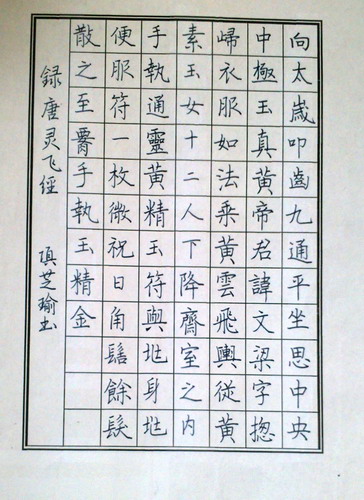 向太歲叩齒九通平坐思中央
中極玉真黃帝君諱文梁字揔
歸衣服如法乘黃雲飛輿從黃
素玉女十二人下降齋室之内
手執通靈黃精玉符與兆身兆
便服符一枚微祝曰角髻餘髮
散之至腰手執玉精金
録唐灵飞經 芝瑜书